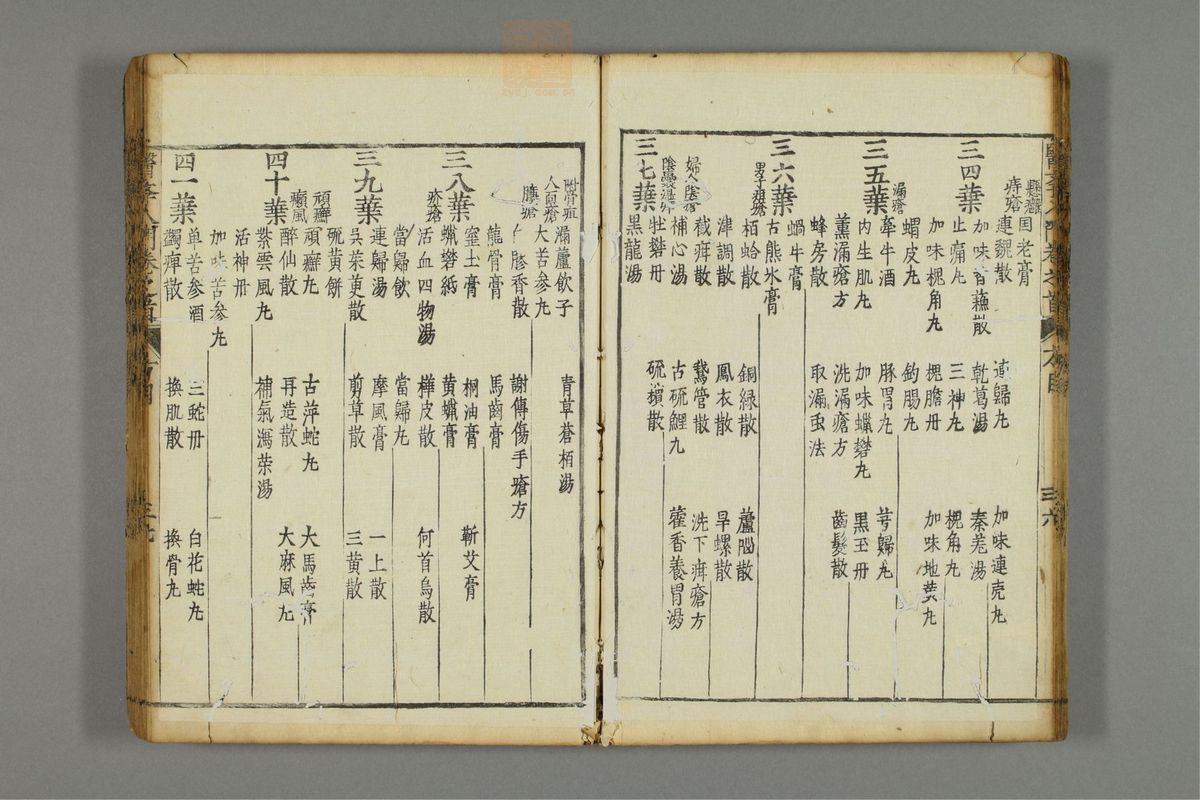 懸癰 国老膏
痔瘡 連魏散 連歸九 加味連壳九
三四葉 加味香蘇散 乾葛湯 秦羗湯
止痛九 三神九 槐角九
加味槐角九 槐膽丹 加味地黄九
蝟皮九 鈎腸九
漏瘡 牽牛酒 豚胃九 芎歸九
三五葉 内生肌九 加味蠟礬九 黒玉丹
薰漏瘡方 洗漏瘡方 齒髮散
蜂房散 取漏虫法
蝸牛膏
三六葉 古熊氷膏
男子 栢蛤散 銅緑散 蘆腦散
津調散 鳳衣散 旱螺散
婦人陰瘡 截疳散 鵞管散 洗下疳瘡方
補心湯 古硫鯉九 藿香養胃湯
三七葉 牡礬丹 硫
黒龍湯
附骨疽 漏蘆飲子 青草蒼栢湯
人面瘡 大苦参九
臁瘡 散 謝傳傷手瘡方
龍骨膏 馬齒膏
三八葉 窑土膏 桐油膏 蘄艾膏
蠟礬紙 黄蠟膏
疥瘡 活血四物湯 樺皮散 何首烏散
當歸飲 當歸九
三九葉 連歸湯 摩風膏 一上散
吳茱萸散 剪草散 三黄散
硫黄餅
頑癬 頑癬九 古萍蛇九 大馬齒膏
癘風 醉仙散 再造散 大麻風九
四十葉 紫雲風九 補氣瀉荣湯
活神丹
加味苦参九
四一葉 单苦参酒 三蛇丹 白花蛇九
蠲痺散 換肌散 換骨九